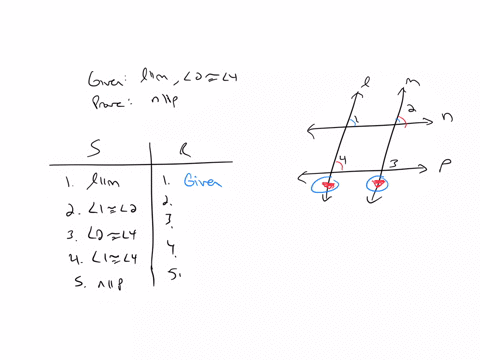 Given: l||m, ∠2≅∠4
Prove: n||p
S R
1. l||m 1. Given
2. ∠1≅∠2 2.
3. ∠2≅∠4 3.
4. ∠1≅∠4 4.
5. n||p 5.
l m
1 2 n
4 3 p